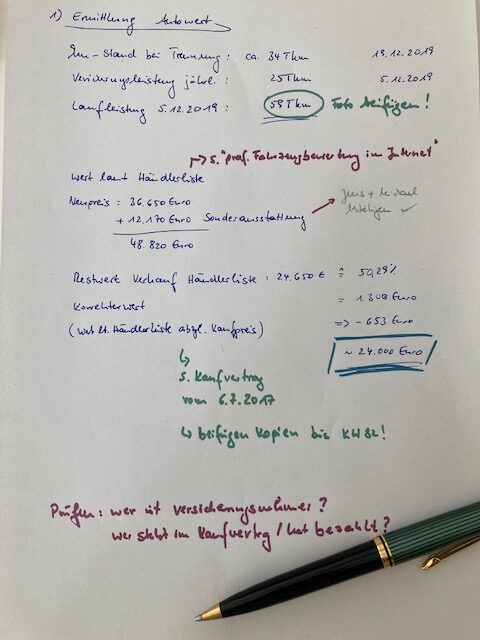 1) Ermittlung Autowert
Km-Stand bei Trennung : ca. 34 Tkm 19.12.2019
Versicherungsleistung jährl. : 25 Tkm 5.12.2019
Laufleistung 5.12.2019 : 59 Tkm Foto beifügen!
→ s. "prof. Fahrzeugbewertung im Internet"
Wert laut Händlerliste
Neupreis : 36.650 Euro
+ 12.170 Euro Sonderausstattung
bestätigen ✓
48.820 Euro
Restwert Verkauf Händlerliste : 24.650 € ≙ 50,29%
Korrekturwert = 1.300 Euro
(Wert lt. Händlerliste abzgl. Kaufpreis) => - 653 Euro
~ 24.000 Euro
↳ s. Kaufvertrag
vom 6.7.2017
↳ beifügen Kopien bis KW 82!
Prüfen : wer ist Versicherungsnehmer?
wer steht im Kaufvertrag / hat bezahlt?